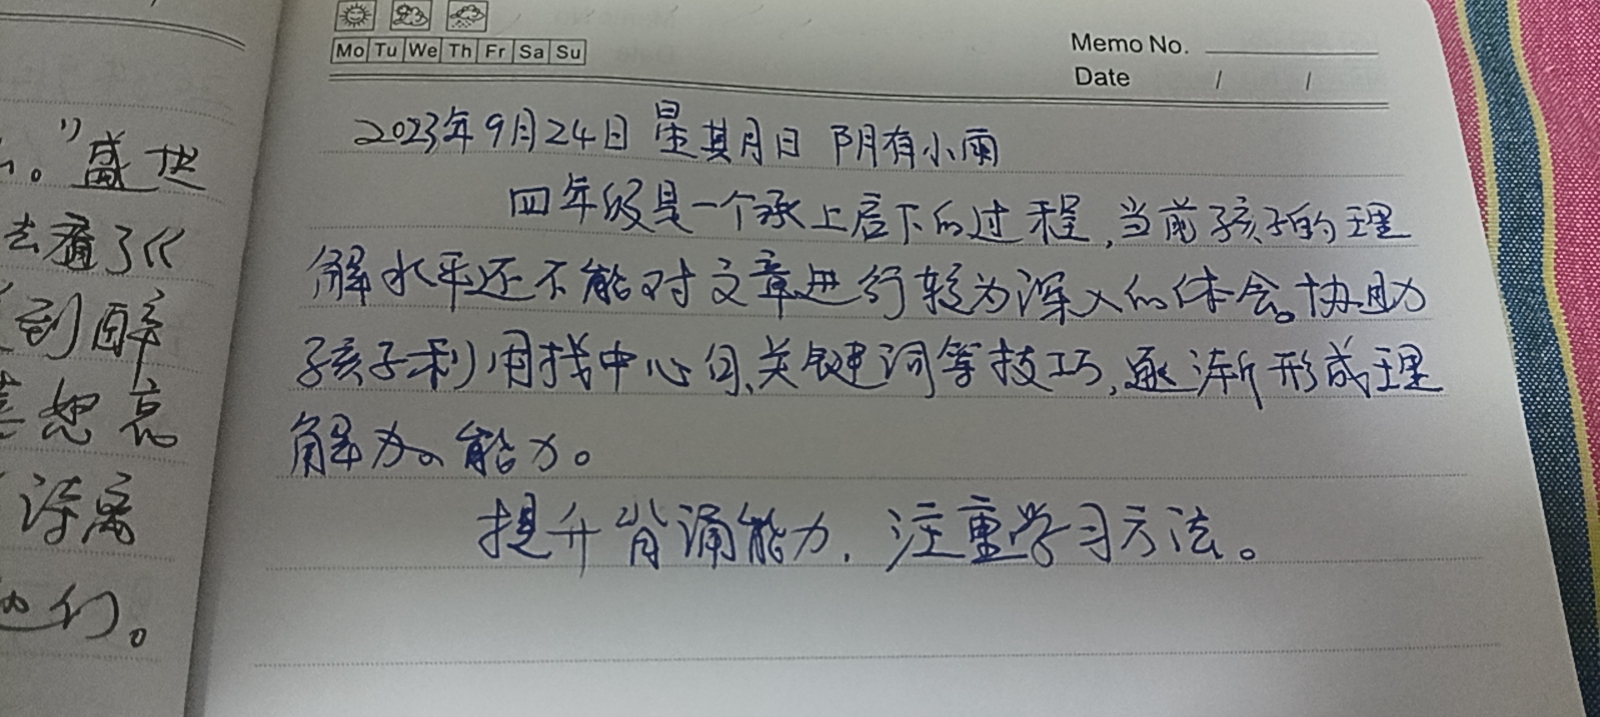 Mo Tu We Th Fr Sa Su
Memo No.
Date / /
2023年9月24日 星期日 阴有小雨
四年级是一个承上启下的过程,当前孩子的理
解水平还不能对文章进行较为深入的体会。协助
孩子利用找中心句、关键词等技巧,逐渐形成理
解力。能力。
提升背诵能力,注重学习方法。
。”盛世
去看了《
到醉
恕哀
诗离
他们。